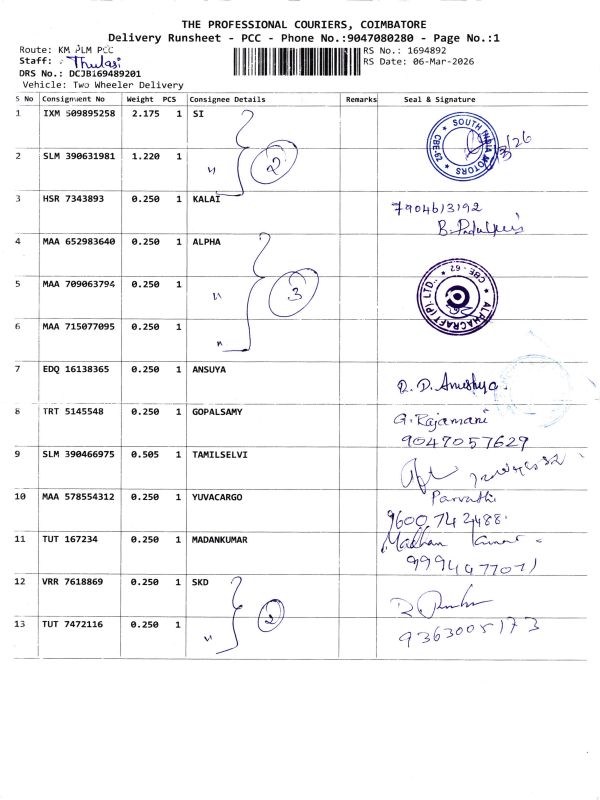 THE PROFESSIONAL COURIERS, COIMBATORE
Delivery Runsheet - PCC - Phone No.:9047080280 - Page No.:1
Route: KM PLM PCC
RS No.: 1694892
Staff: Thulasi
RS Date: 06-Mar-2026
DRS No.: DCJB169489201
Vehicle: Two Wheeler Delivery
S No Consignment No Weight PCS Consignee Details Remarks Seal & Signature
1 IXM 509895258 2.175 1 SI
SOUTH INDIA MOTORS CBE-29
2 SLM 390631981 1.220 1 " 2
3 HSR 7343893 0.250 1 KALAI 7904613192
4 MAA 652983640 0.250 1 ALPHA
5 MAA 709063794 0.250 1 " 3
ALPHACRAFT (P) LTD., CBE - 62
6 MAA 715077095 0.250 1 "
7 EDQ 16138365 0.250 1 ANSUYA
8 TRT 5145548 0.250 1 GOPALSAMY G. Rajamani
9047057629
9 SLM 390466975 0.505 1 TAMILSELVI
10 MAA 578554312 0.250 1 YUVACARGO Parvathi
9600 742488
11 TUT 167234 0.250 1 MADANKUMAR Madhan Kumar
9994477071
12 VRR 7618869 0.250 1 SKD 2
13 TUT 7472116 0.250 1 " 9363005173